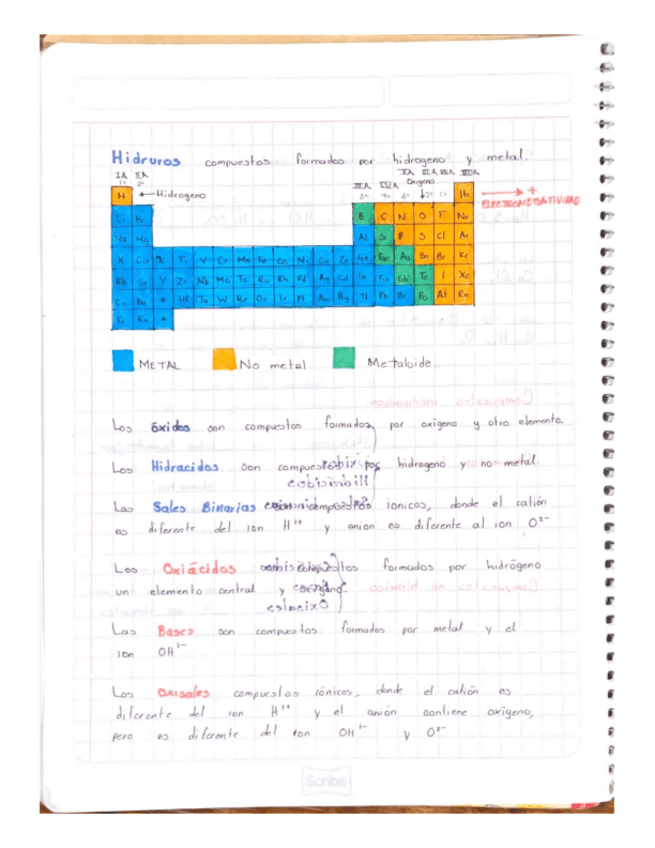 Hidruros compuestos formados por hidrogeno y metal.
IA IIA IIIA IVA VA VIA VIIA VIIIA
1+ 2+ Oxigeno
H ← Hidrogeno He → +
ELECTRONEGATIVIDAD
Li Be B C N O F Ne
Na Mg Al Si P S Cl Ar
K Ca Sc Ti V Cr Mn Fe Co Ni Cu Zn Ga Ge As Se Br Kr
Rb Sr Y Zr Nb Mo Tc Ru Rh Pd Ag Cd In Sn Sb Te I Xe
Cs Ba * Hf Ta W Re Os Ir Pt Au Hg Tl Pb Bi Po At Rn
Fr Ra *
METAL No metal Metaloide.
Los óxidos son compuestos formados por oxigeno y otro elemento.
Los Hidracidos son compuestos por hidrogeno y no metal.
Las Sales Binarias compuestos ionicos, donde el catión
es diferente del ion H¹⁺ y anion es diferente al ion O²⁻
Los Oxiácidos compuestos formados por hidrógeno
un elemento central y oxígeno.
Las Bases son compuestos formados por metal y el
ion OH¹⁻
Los Oxisales compuestos iónicos, donde el catión es
diferente del ion H¹⁺ y el anión contiene oxígeno,
pero es diferente del ion OH¹⁻ y O²⁻
Scribe